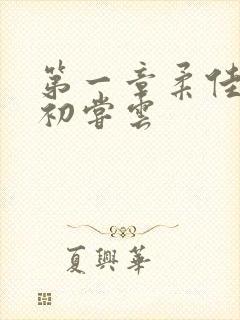 第一章柔佳
初嘗雲
夏興華